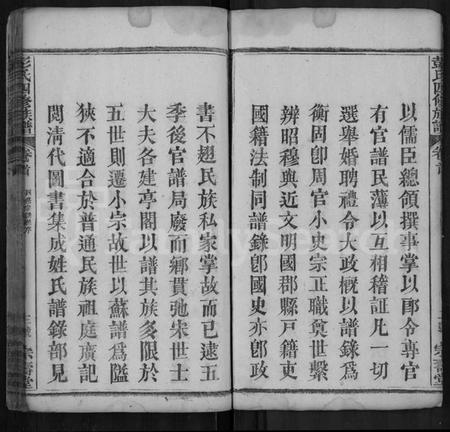 彭氏四修族譜
卷首
宗壽堂
以儒臣總領撰事掌以郎令專官
有官譜民薄以互相稽証凡一切
選舉婚聘禮令大政概以譜錄為
衡固卽周官小史宗正職奠世繫
辨昭穆與近文明國郡縣戸籍吏
國籍法制同譜錄卽國史亦卽政
書不趐民族私家掌故而已逮五
季後官譜局廢而鄉貫弛宋世士
大夫各建亭閣以譜其族多限於
五世則遷小宗故世以蘇譜為隘
狹不適合於普通民族祖庭廣記
閱淸代圖書集成姓氏譜錄部見
彭氏四修族譜
卷首
宗壽堂